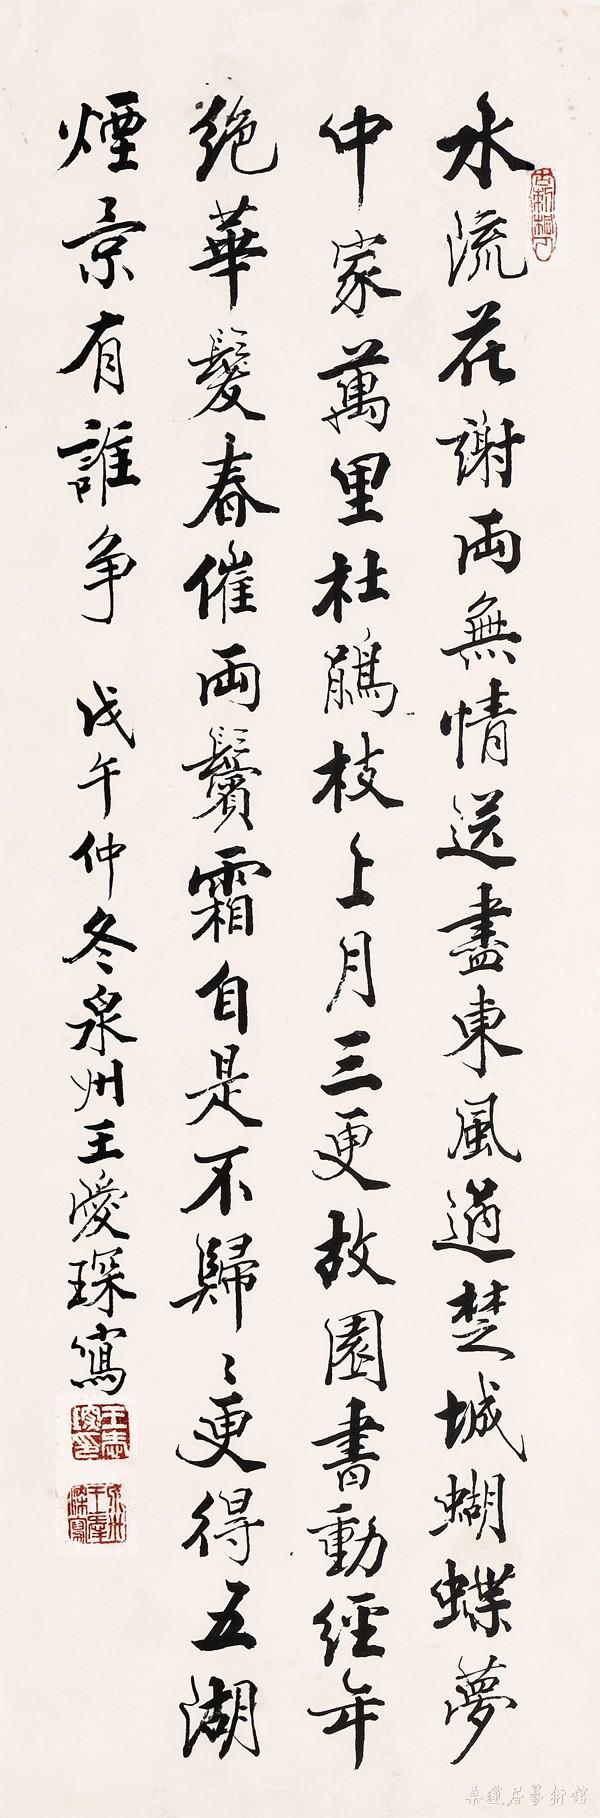 水流花謝両無情送盡東風過楚城蝴蝶夢
中家萬里杜鵑枝上月三更故園書動經年
絶華髮春催両鬢霜自是不歸〻更得五湖
煙景有誰争
戊午仲冬泉州王愛琛寫